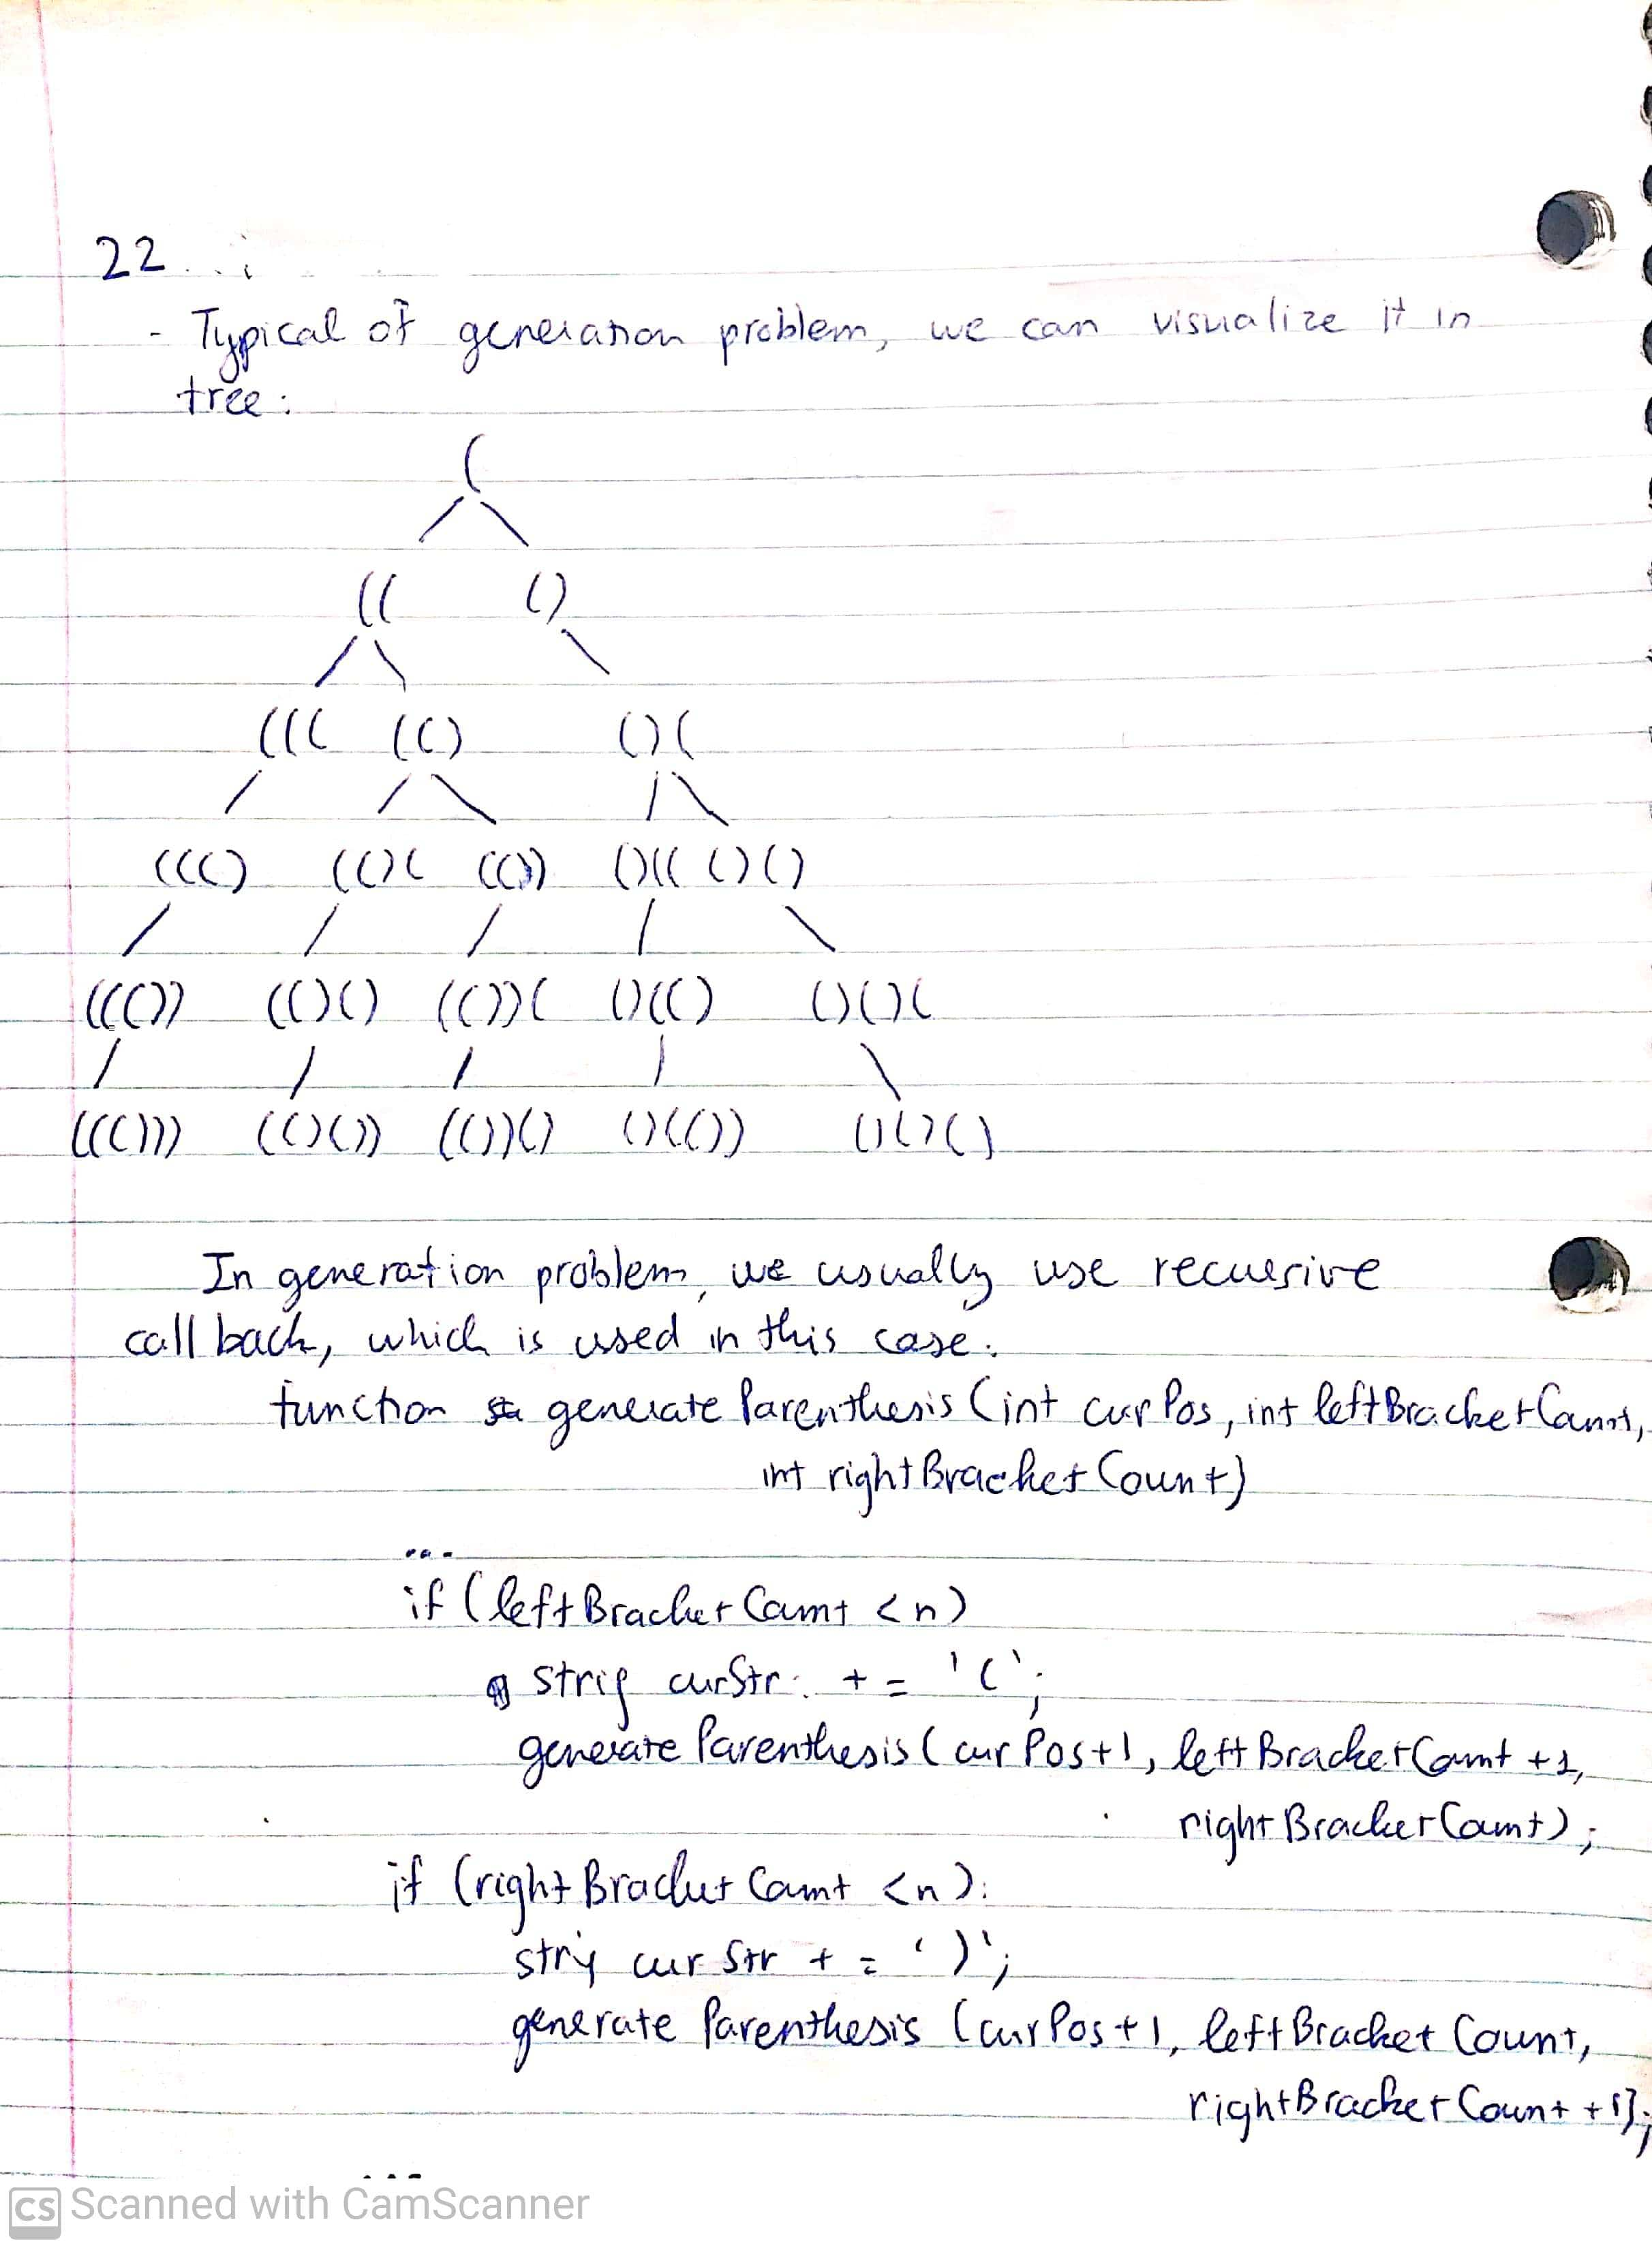 22
- Typical of generation problem, we can visualize it in
tree:
(
(( ()
((( (() ()(
((() (()( (()) ()(( ()()
((()) (()() (())( ()(() ()()(
((())) (()()) (())() ()(()) ()()()
In generation problem, we usually use recuersive
call back, which is used in this case.
function generate Parenthesis (int cur Pos, int leftBracketCount,
int right Bracket Count)
...
if (left Bracket Count <n)
curStr. += '(';
generate Parenthesis (cur Pos+1, left BracketCount +1,
right Bracket Count);
if (right Bracket Count <n):
cur Str += ')';
generate Parenthesis (cur Pos +1, left Bracket Count,
rightBracket Count +1);
...
CS Scanned with CamScanner